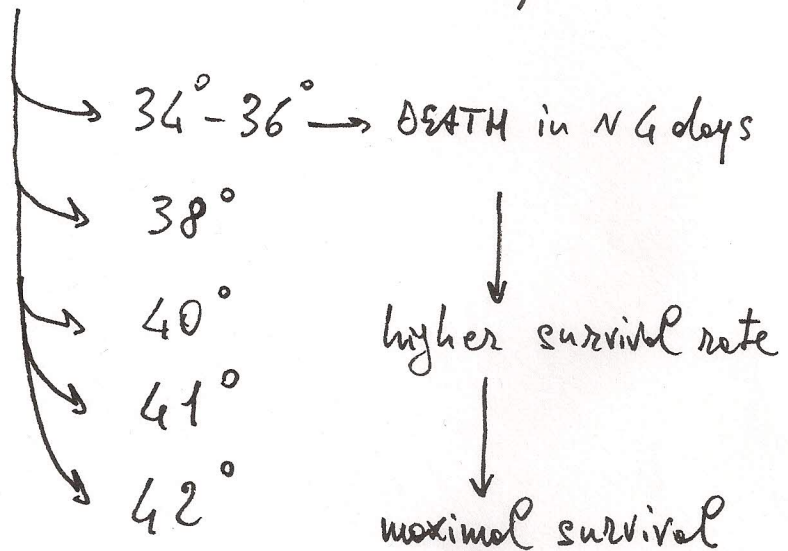 34° - 36° → DEATH in ~ 4 days
38°
40°
higher survival rate
41°
42°
maximal survival